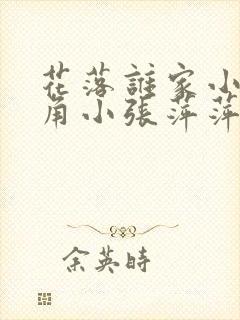 花落誰家小
角小張萍萍
余英時